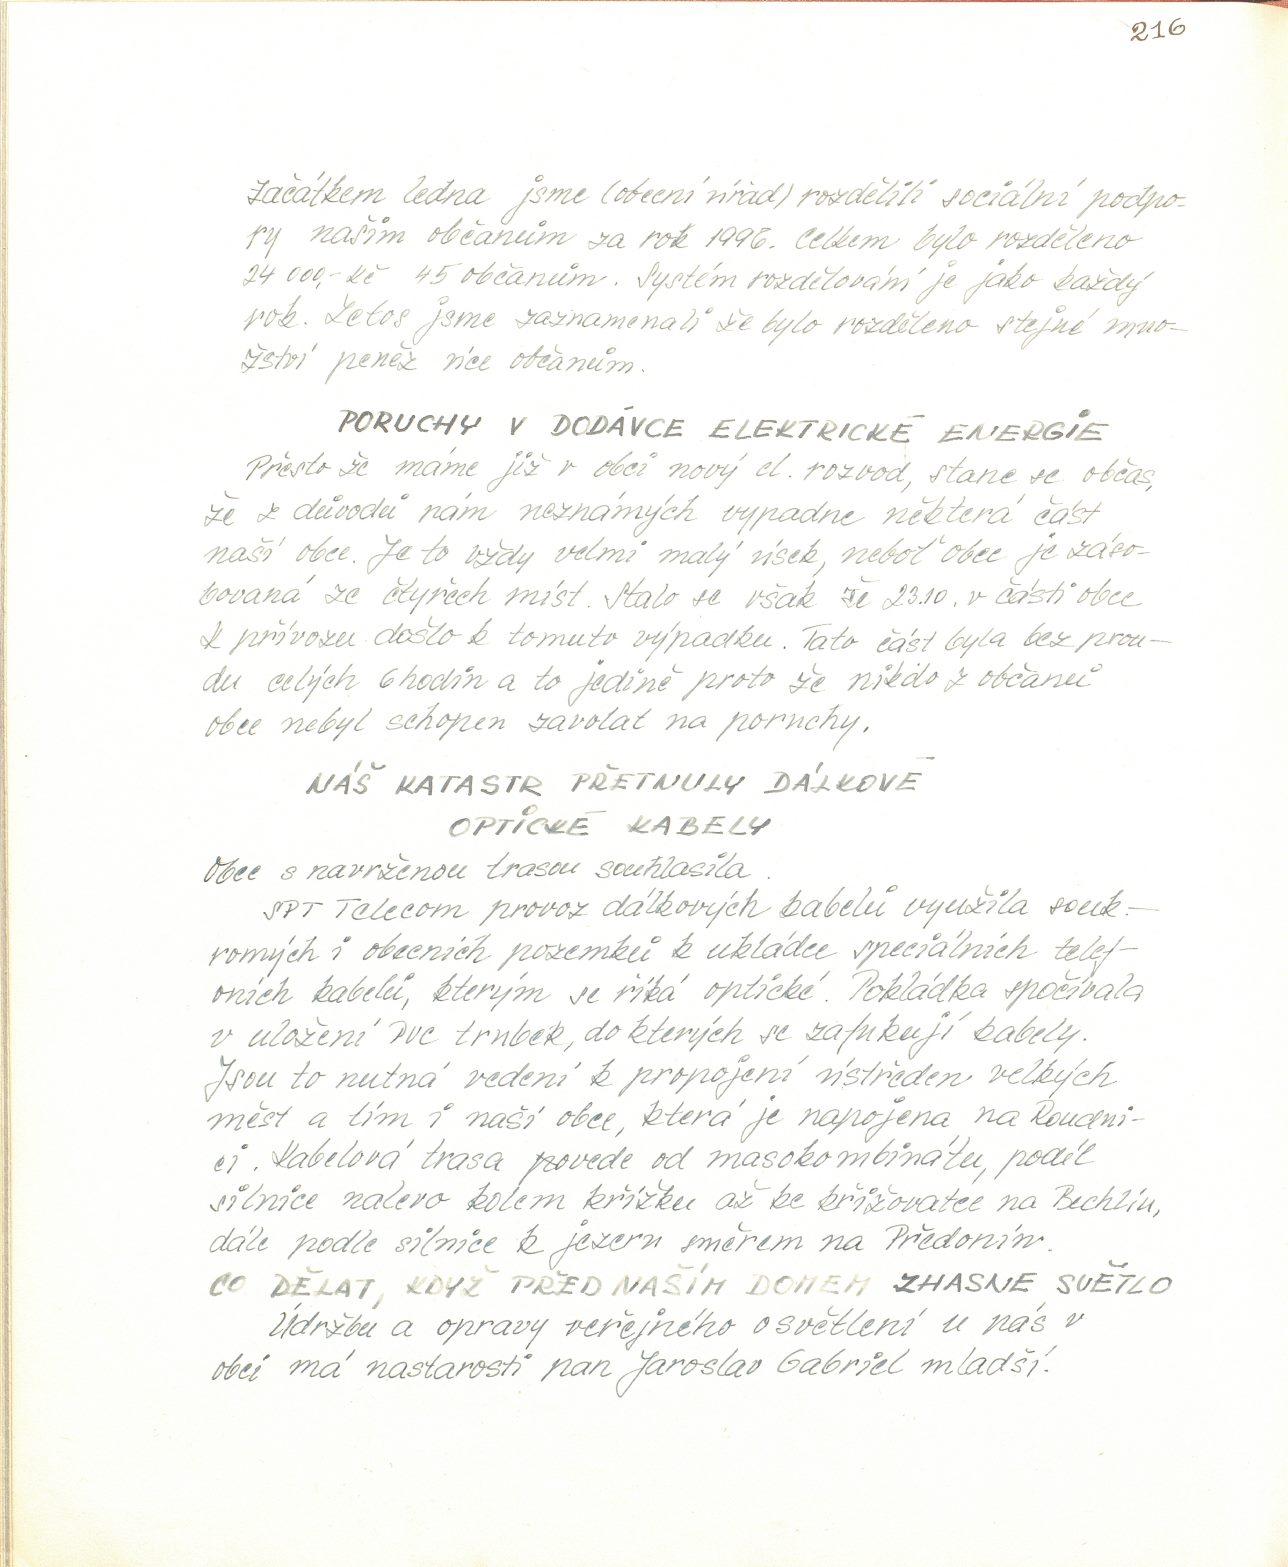 216
Začátkem ledna jsme (obecní úřad) rozdělili sociální podpo-
ry našim občanům za rok 1996. Celkem bylo rozděleno
24 000,- Kč 45 občanům. Systém rozdělování je jako každý
rok. Letos jsme zaznamenali že bylo rozděleno stejné mno-
žství peněz více občanům.
PORUCHY V DODÁVCE ELEKTRICKÉ ENERGIE
Přesto že máme již v obci nový el. rozvod, stane se občas,
že z důvodů nám neznámých vypadne některá část
naší obce. Je to vždy velmi malý úsek, neboť obec je záso-
bovaná ze čtyřech míst. Stalo se však že 23.10. v části obce
k přívozu došlo k tomuto výpadku. Tato část byla bez prou-
du celých 6 hodin a to jedině proto že nikdo z občanů
obce nebyl schopen zavolat na poruchy.
NÁŠ KATASTR PŘETNULY DÁLKOVÉ
OPTICKÉ KABELY
Obec s navrženou trasou souhlasila.
SPT Telecom provoz dálkových kabelů využila souk-
romých i obecních pozemků k ukládce speciálních telef-
oních kabelů, kterým se říká optické. Pokládka spočívala
v uložení PVC trubek, do kterých se zafukují kabely.
Jsou to nutná vedení k propojení ústředen velkých
měst a tím i naší obce, která je napojena na Roudni-
ci. Kabelová trasa povede od masokombinátu, podél
silnice nalevo kolem křížku až ke křižovatce na Bechlín,
dále podle silnice k jezeru směrem na Předonín.
CO DĚLAT, KDYŽ PŘED NAŠÍM DOMEM ZHASNE SVĚTLO
Údržbu a opravy veřejného osvětlení u nás v
obci má nastarosti pan Jaroslav Gabriel mladší.